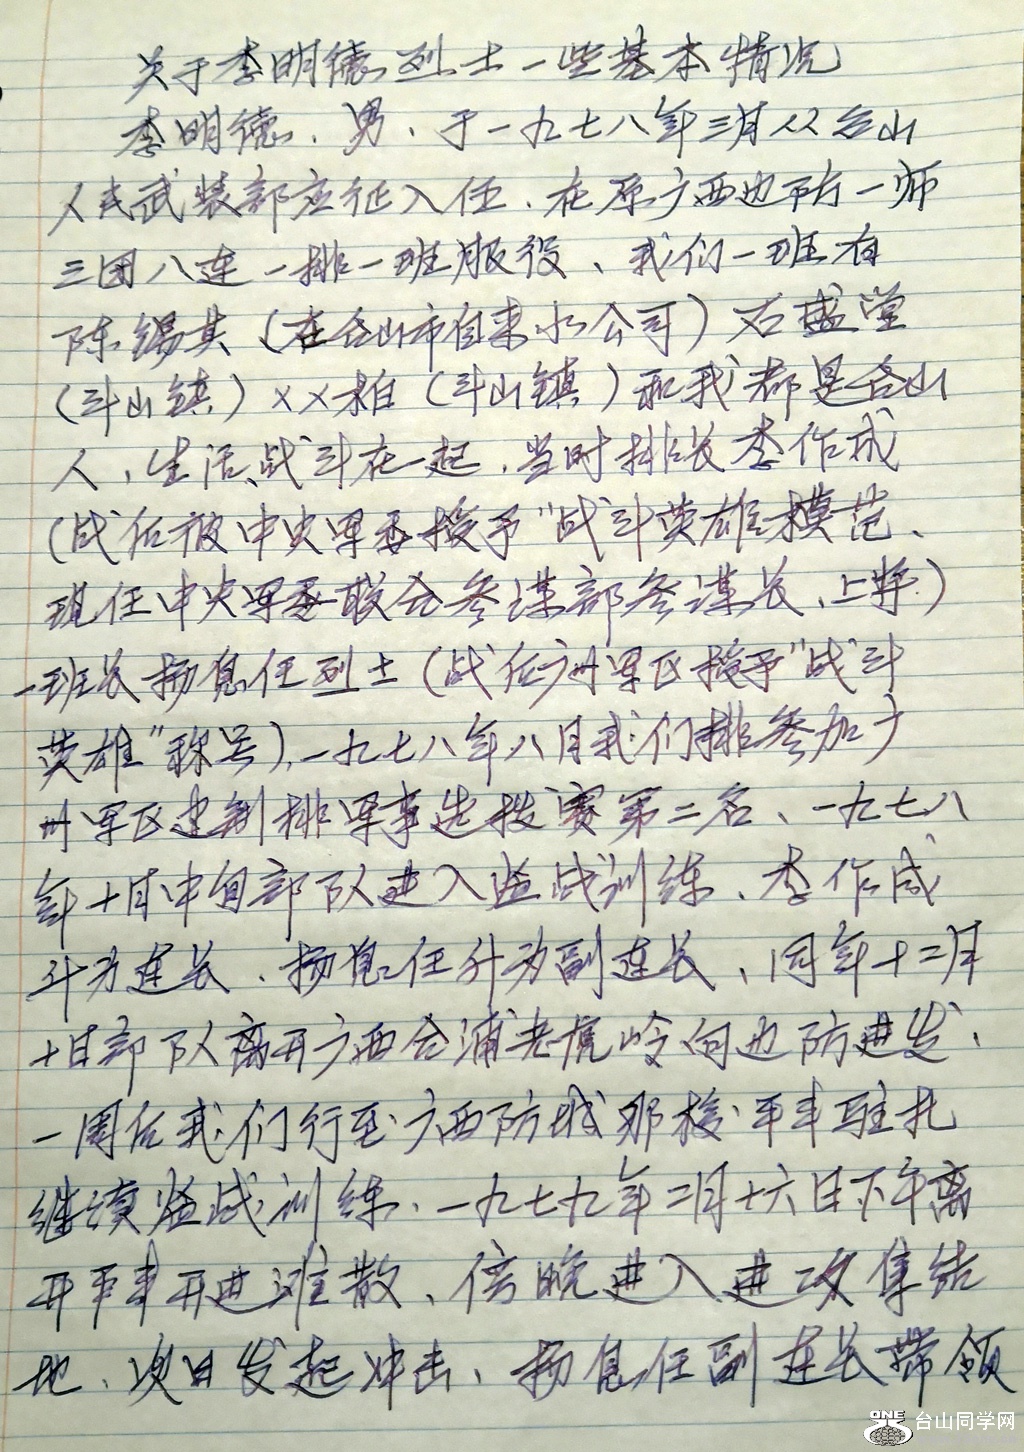 关于李明德烈士一些基本情况
李明德、男、于一九七八年三月从台山
人民武装部应征入伍、在原广西边防一师
三团八连一排一班服役、我们一班有
陈锡其（在台山市自来水公司）石盛堂
（斗山镇）××柏（斗山镇）和我都是台山
人，生活战斗在一起，当时排长李作成
（战后被中央军委授予"战斗英雄模范、
现任中央军委联合参谋部参谋长、上将）
一班长扬息任烈士（战后广州军区授予"战斗
英雄"称号），一九七八年八月我们排参加广
州军区建制排军事选拔赛第二名、一九七八
年十月中旬部队进入临战训练、李作成
升为连长、扬息任升为副连长、同年十二月
十日部队离开广西合浦老虎岭向边防进发、
一周后我们行至广西防城那梭平丰驻扎
继续临战训练、一九七九年二月十六日下午离
开平丰开进滩散、傍晚进入进攻集结
地、次日发起冲击、扬息任副连长带领
ONE
台山同学网